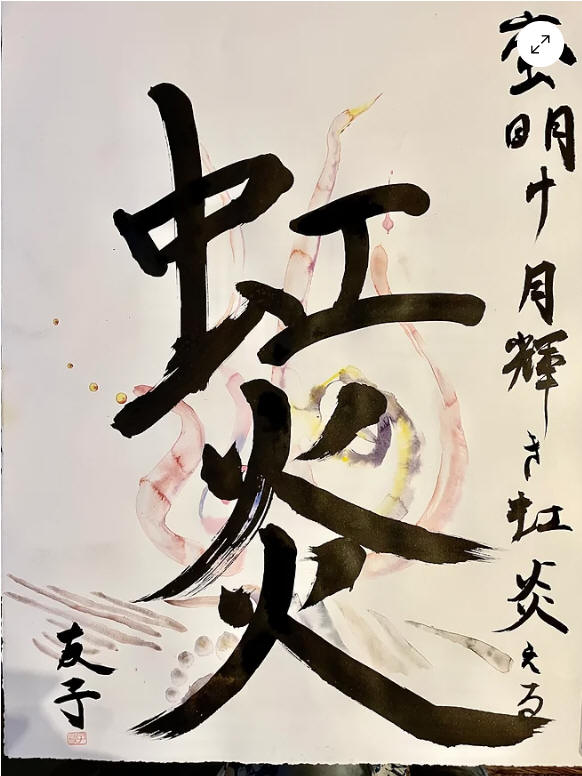 明け月輝き虹炎える
虹炎
友子